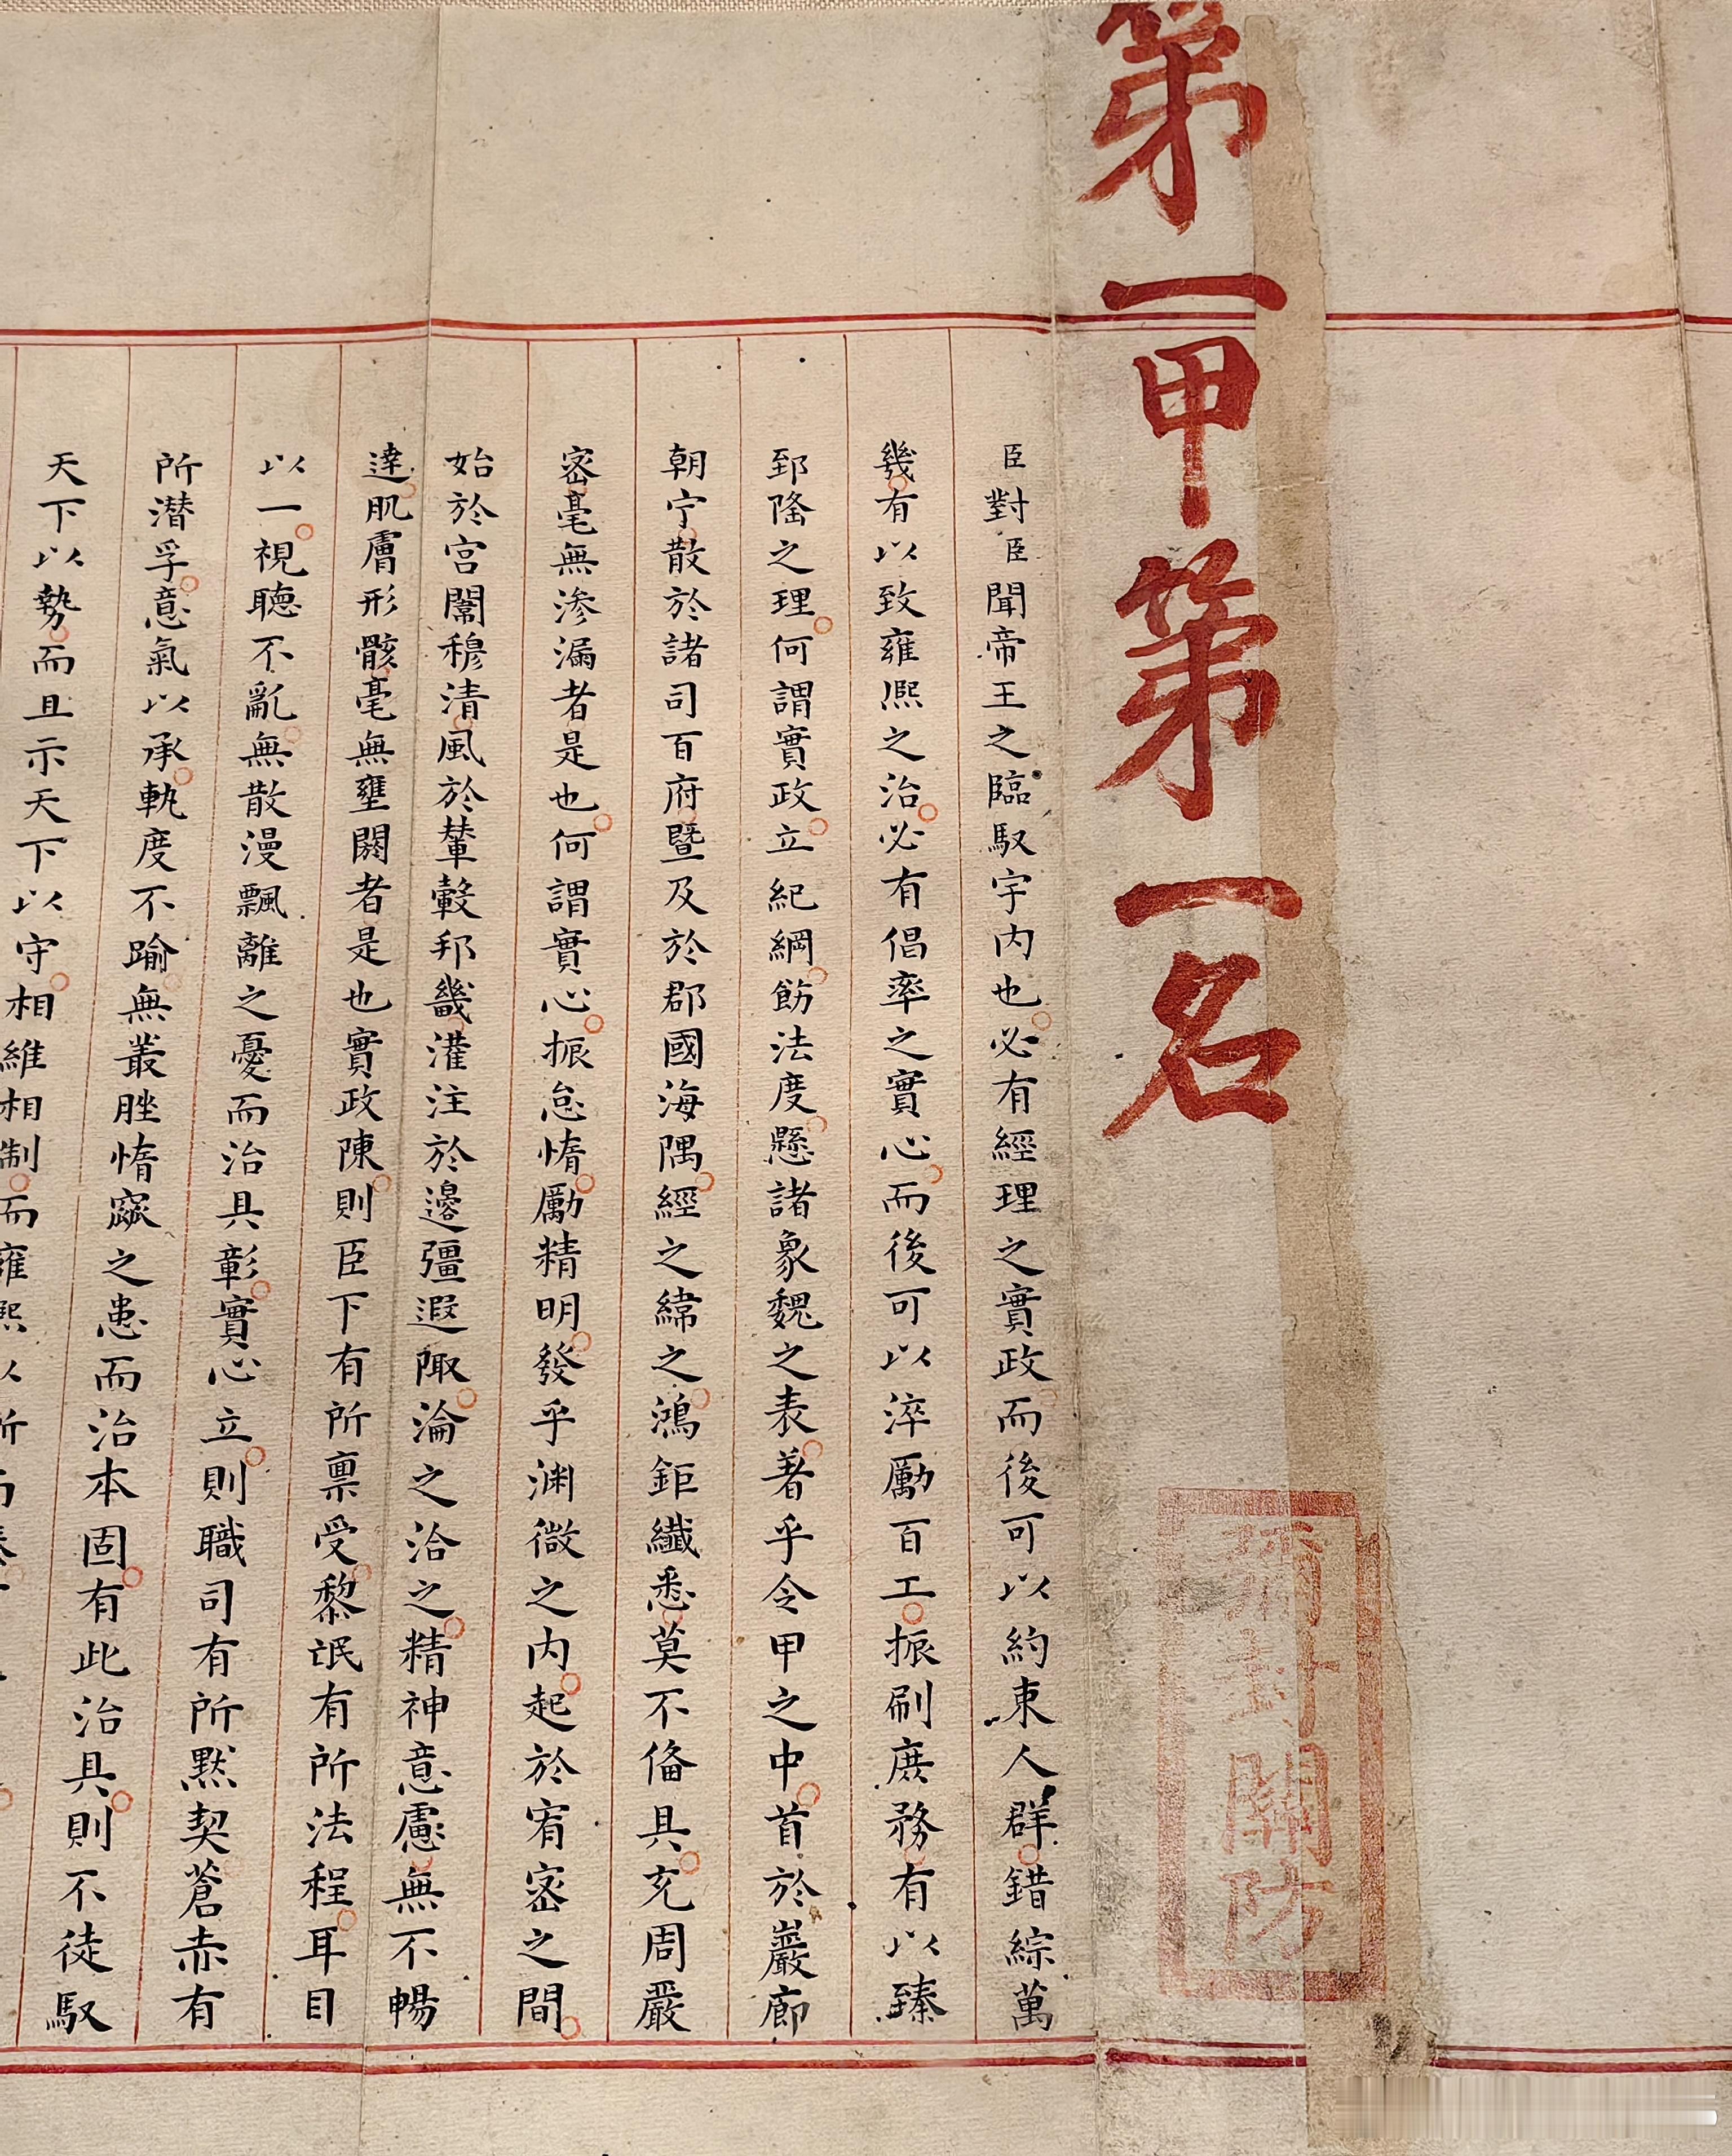 第一甲第一名
彌封關防
臣對臣聞帝王之臨馭宇内也必有經理之實政而後可以約束人群錯綜萬
幾有以致雍熙之治必有倡率之實心而後可以淬勵百工振刷庶務有以臻
郅隆之理何謂實政立紀綱飭法度懸諸象魏之表著乎令甲之中首於巖廊
朝宁散於諸司百府暨及於郡國海隅經之緯之鴻鉅纖悉莫不俻具充周嚴
宻毫無滲漏者是也何謂實心振怠惰勵精明發乎渊微之内起於宥宻之間
始於宫闈穆清風於輦轂邦畿灌注於邉彊遐陬淪之洽之精神意慮無不暢
逹肌膚形骸毫無壅閼者是也實政陳則臣下有所禀受黎氓有所法程耳目
以一視聴不亂無散漫飄離之憂而治具彰實心立則職司有所黙契蒼赤有
所潜孚意氣以承軌度不踰無叢脞惰窳之患而治本固有此治具則不徒馭
天下以勢而且示天下以守相維相制而雍熙以所